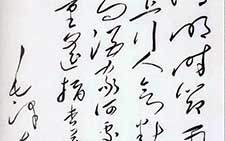 明時節雨
上行人欲断
问酒家何處
童遥指杏
毛泽